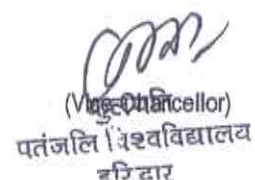 (Vice Chancellor)
कुलपति
पतंजलि विश्वविद्यालय
हरिद्वार